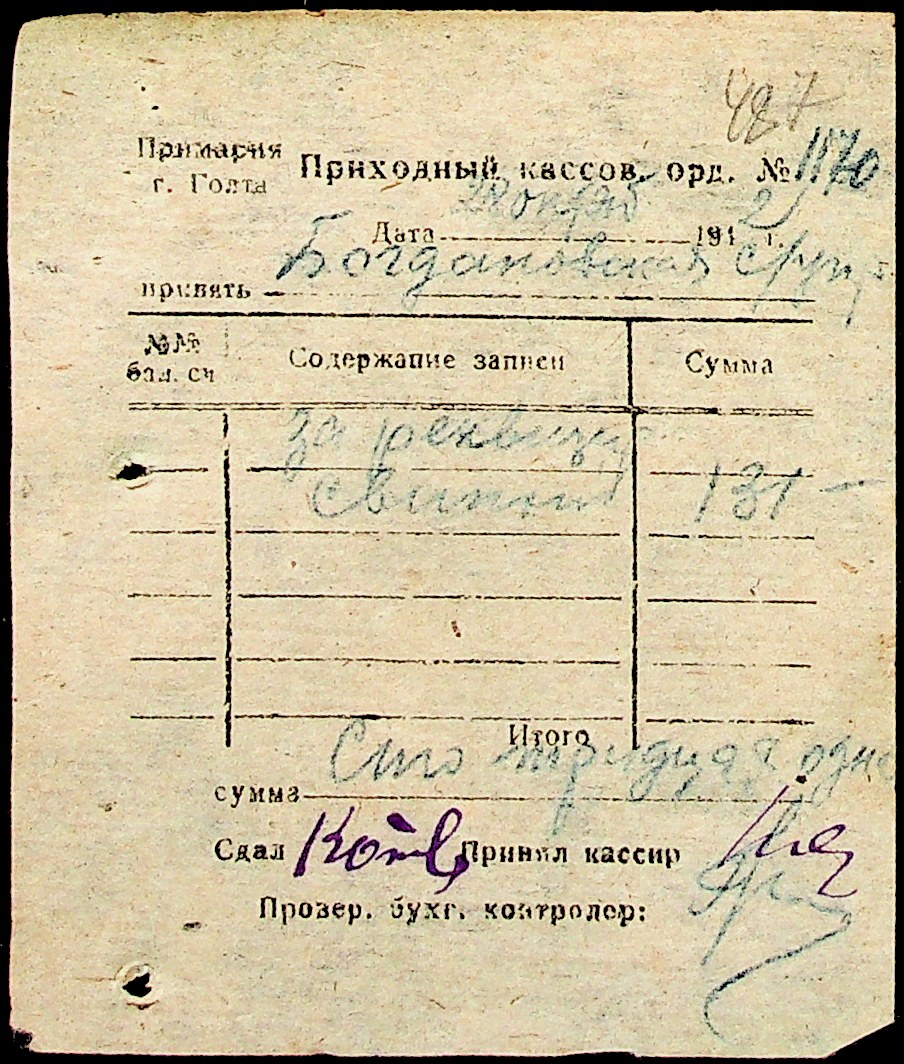 487
Примария
г. Голта
Приходный кассов. орд. № 1170
Дата 1942 г.
принять Богдановская
№№
бал. сч
Содержание записи
Сумма
за реквизир
свиный 131 —
Итого
сумма Сто тридцать один
Сдал Принял кассир
Провер. бухг. контролер: